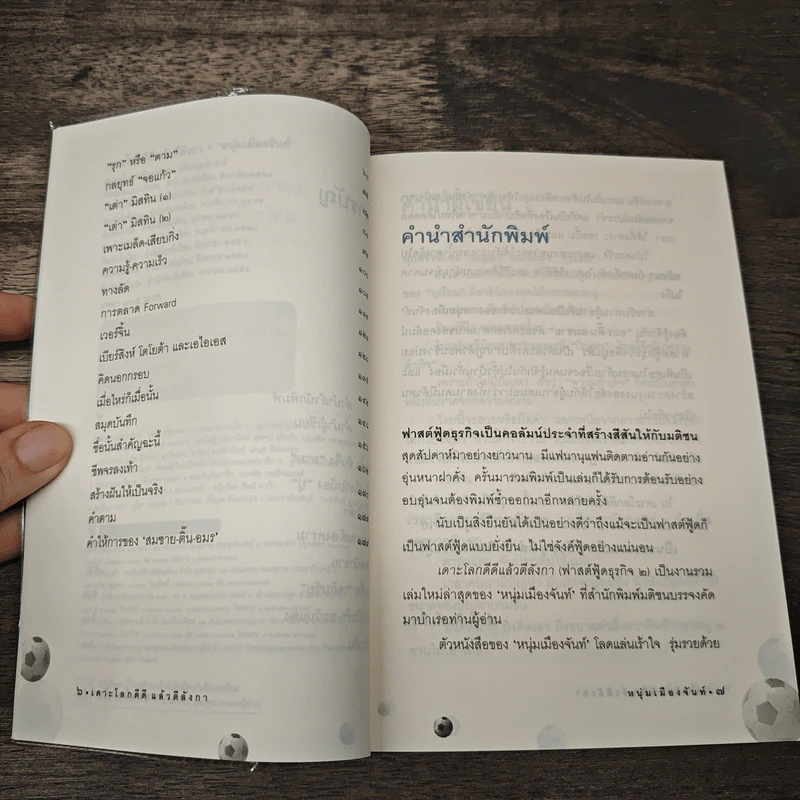 “รุก” หรือ “ตาม”
กลยุทธ์ “จอแก้ว”
“เต๋า” มิสทิน (๑)
“เต๋า” มิสทิน (๒)
เพาะเมล็ด-เสียบกิ่ง
ความรู้-ความเร็ว
ทางลัด
การตลาด Forward
เวอร์จิ้น
เบียร์สิงห์ โตโยต้า และเอไอเอส
คิดนอกกรอบ
เมื่อไหร่ก็เมื่อนั้น
สมุดบันทึก
ชื่อนั้นสำคัญฉะนี้
ชีพจรลงเท้า
สร้างฝันให้เป็นจริง
คำตาม
คำให้การของ ‘สมชาย-ติ๊น-อมร’
๖ • เดาะโลกดีดี แล้วตีลังกา
คำนำสำนักพิมพ์
ฟาสต์ฟู้ดธุรกิจเป็นคอลัมน์ประจำที่สร้างสีสันให้กับมติชน
สุดสัปดาห์มาอย่างยาวนาน มีแฟนานุแฟนติดตามอ่านกันอย่าง
อุ่นหนาฝาคั่ง ครั้นมารวมพิมพ์เป็นเล่มก็ได้รับการต้อนรับอย่าง
อบอุ่นจนต้องพิมพ์ซ้ำออกมาอีกหลายครั้ง
นับเป็นสิ่งยืนยันได้เป็นอย่างดีว่าถึงแม้จะเป็นฟาสต์ฟู้ดก็
เป็นฟาสต์ฟู้ดแบบยั่งยืน ไม่ใช่จังค์ฟู้ดอย่างแน่นอน
เดาะโลกดีดีแล้วตีลังกา (ฟาสต์ฟู้ดธุรกิจ ๒) เป็นงานรวม
เล่มใหม่ล่าสุดของ ‘หนุ่มเมืองจันท์’ ที่สำนักพิมพ์มติชนบรรจงคัด
มาบำเรอท่านผู้อ่าน
ตัวหนังสือของ ‘หนุ่มเมืองจันท์’ โลดแล่นเร้าใจ รุ่มรวยด้วย
หนุ่มเมืองจันท์ • ๗